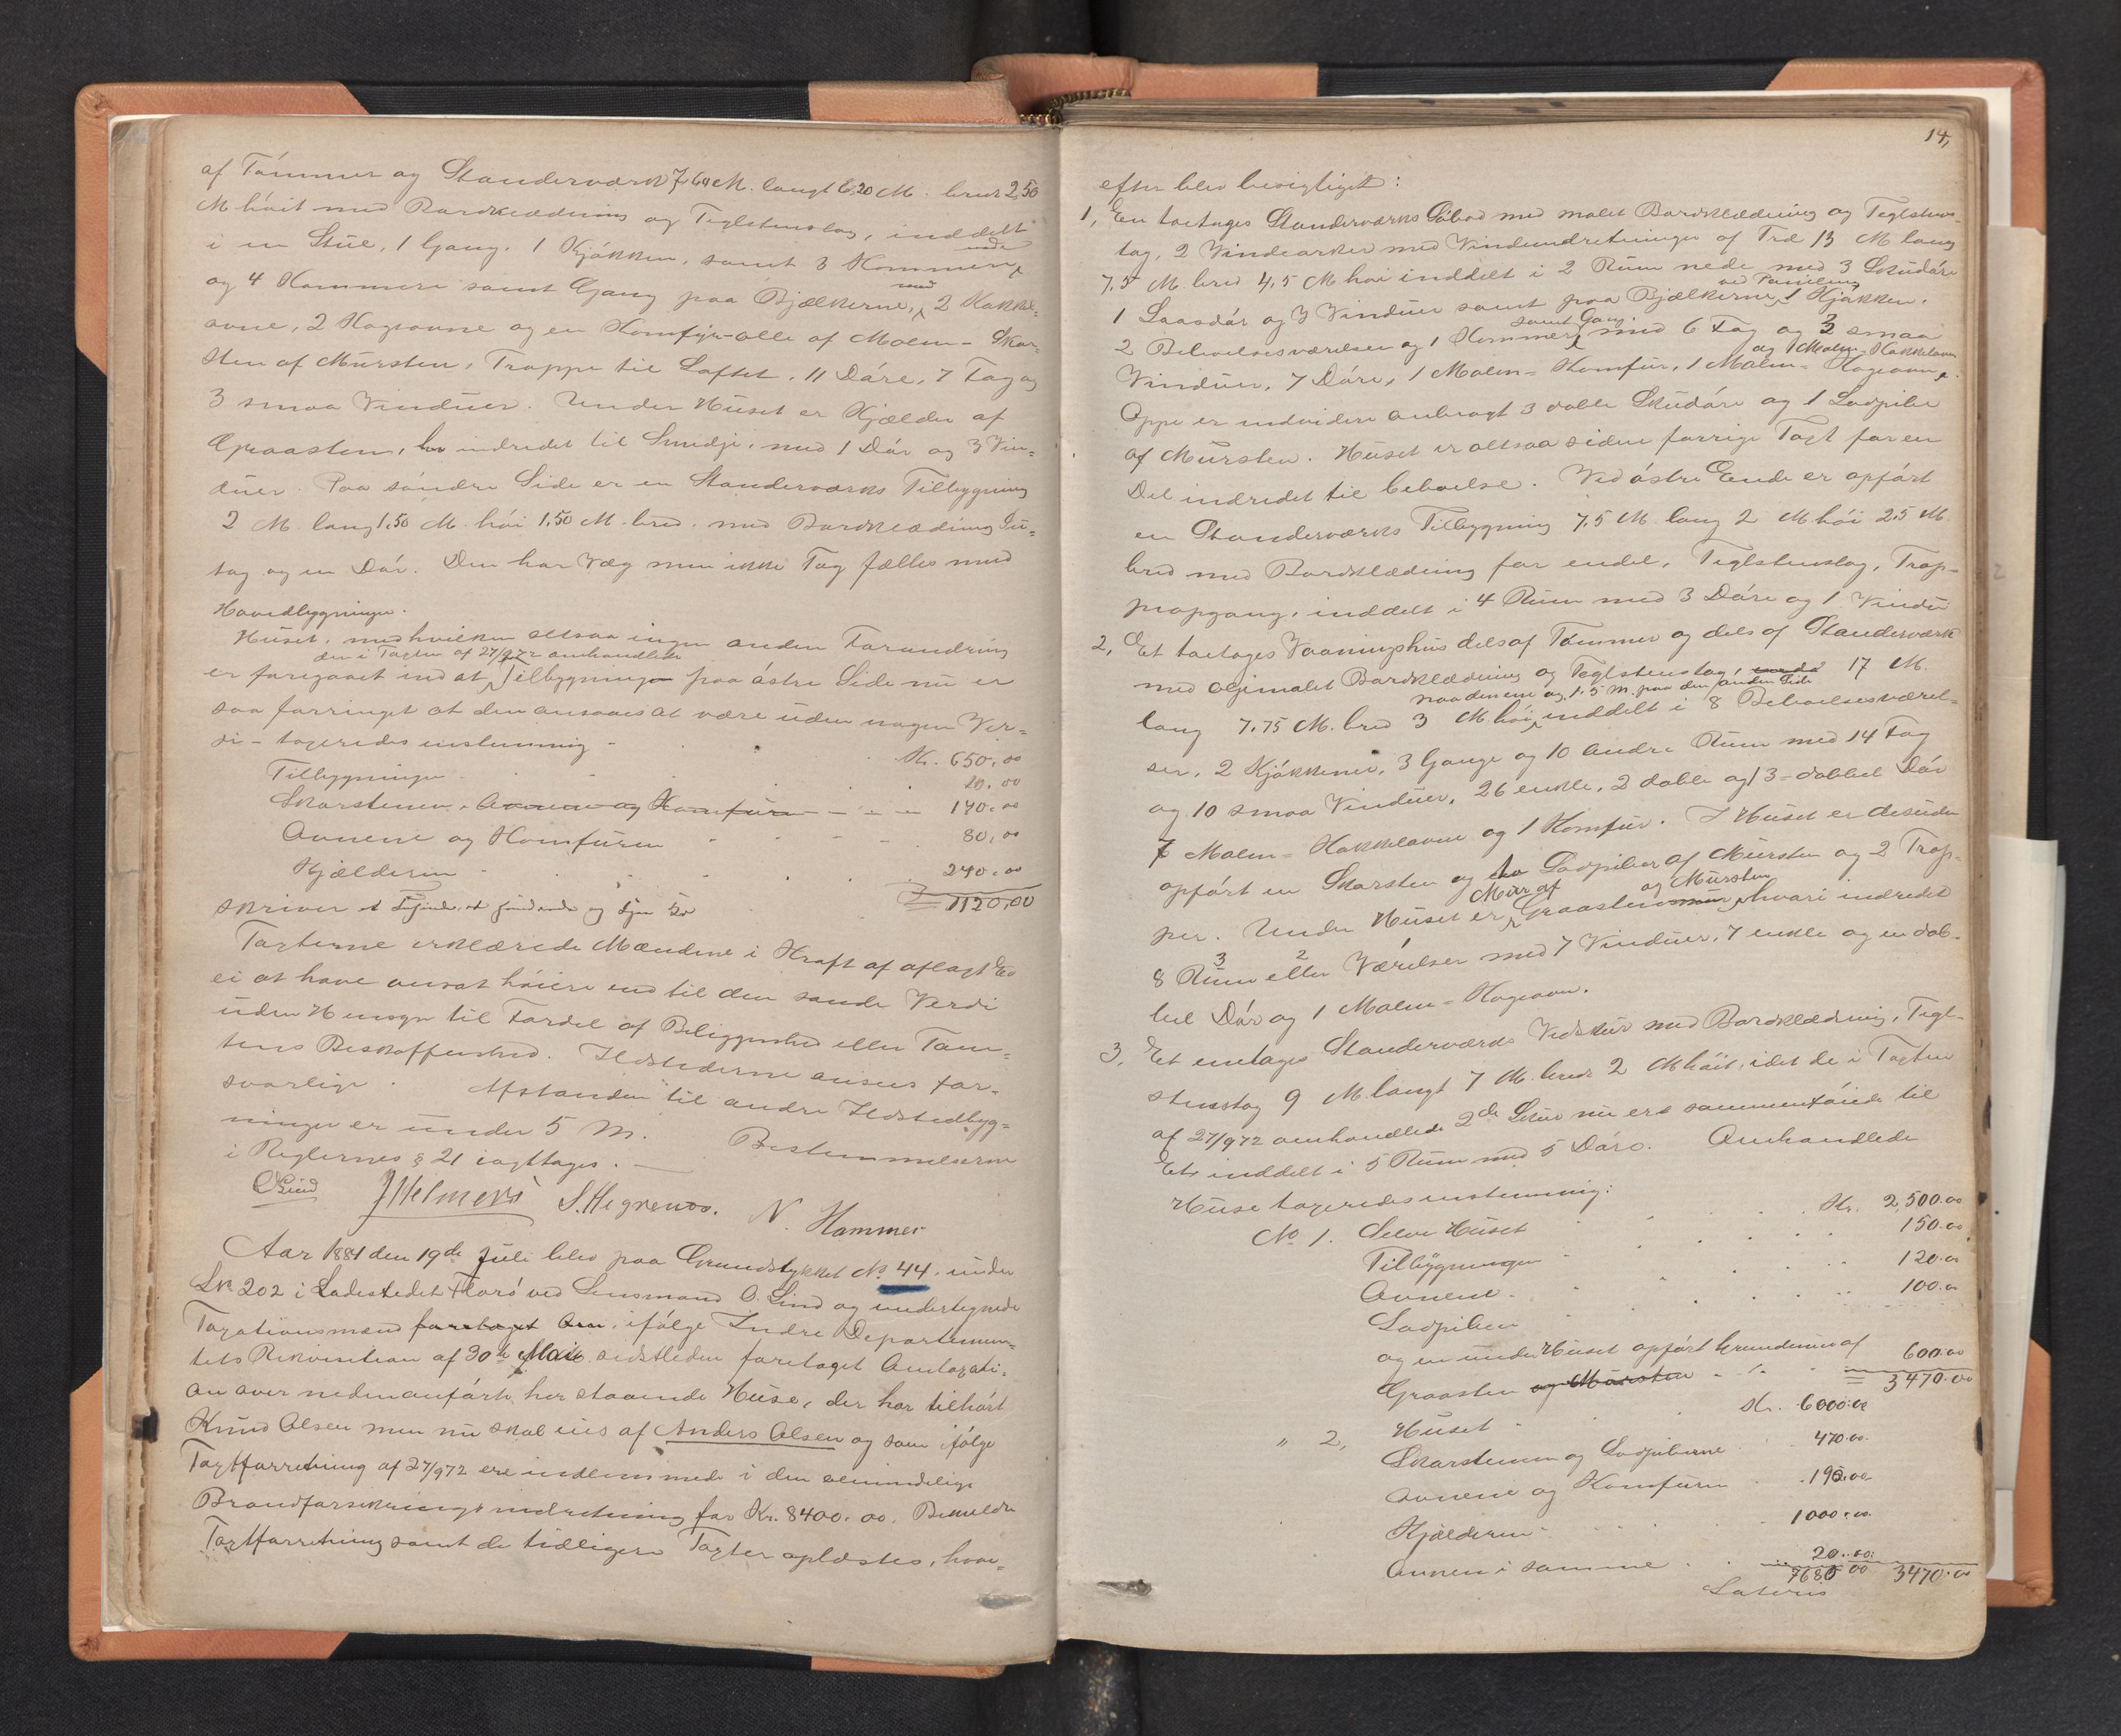 af Tømmer og Standerværk 7,64 M. langt 6,20 M. bredt 2,50
M høit med Bordklædning og Teglstenstag, inddelt
i en Stue, 1 Gang, 1 Kjøkken, samt 3 Kammere nede
og 4 Kammere samt Gang paa Bjælkerne, med 2 Kakkel=
ovne, 2 Kogeovne og en Komfyr - alle af Malm - Skor=
sten af Mursten, Trappe til Loftet, 11 Døre, 7 Fag og
3 smaa Vinduer. Under Huset er Kjelder af
Graasten, indredet til Smedje, med 1 Dør og 3 Vin=
duer. Paa søndre Side er en Standerværks Tilbygning
2 M. lang 1,50 M. høi 1,50 M. bred, med Bordklædning
tag og en Dør. Den har Væg men ikke Tag fælles med
Hovedbygningen.
Huset, med hvilken altsaa ingen anden Forandring
den i Taxten af 27/9 72 omhandlede
er foregaaet end at Tilbygning paa østre Side nu er
saa forringet at den ansaaes at være uden nogen Ver=
di - taxeredes enstemmig - Kr. 650,00
Tilbygningen 10,00
Skorstenen, Ovnene og Komfuren 140,00
Ovnene og Komfuren 80,00
Kjælderen 240,00
skriver et Tusinde, et hundrede og tyve Kr 1120,00
Taxterne erklærede Mændene i Kraft af aflagt Ed
ei at have ansat høiere end til den sande Verdi
uden Hensyn til Fordel af Beliggenhed eller Tom=
tens Beskaffenhed. Ildstederne ansees for=
svarlige. Afstanden til andre Ildstedbyg=
ninger er under 5 M. Bestemmelserne
i Reglernes § 21 iagttages.
OLind JHelmers S. Hegrenæs. N. Hammer
Aar 1884 den 19de Juli blev paa Grundstykket No 44 under
LNo 202 i Ladestedet Florø ved Lensmand O. Lind og undertegnede
Taxationsmænd foretaget Om, ifølge Indre Departemen=
tets Rekvisition af 30te Mai sidstleden foretaget Omtaxati=
on over nedenanførte, her staaende Huse, der har tilhørt
Knud Olsen men nu skal eies af Anders Olsen og som ifølge
Taxtforretning af 27/9 72 ere indlemmede i den almindelige
Brandforsikringsindretning for Kr. 8400,00. Bemeldte
Taxtforretning samt de tidligere Taxter oplæstes, hvor=
14,
efter blev besigtiget:
1, En toetages Standerværks Søbod med malet Bordklædning og Teglstens-
tag, 2 Vindearker med Vindeindretninger af Træ 13 M lang
7,5 M bred 4,5 M høi inddelt i 2 Rum nede med 3 Skudøre
1 Laasdør og 3 Vinduer samt paa Bjælkerne ved Paneling 1 Kjøkken,
2 Beboelsesværelser og 1 Kammer samt Gang med 6 Fag og 3 smaa
Vinduer, 7 Døre, 1 Malm=Komfur, 1 Malm=Kogeovn og 1 Malm-Kakkelovn.
Oppe er endvidere anbragt 3 doble Skudøre og 1 Lodpibe
af Mursten. Huset er altsaa siden forrige Taxt for en
Del indredet til beboelse. Ved østre Ende er opført
en Standerværks Tilbygning 7,5 M lang 2 M høi 2,5 M
bred med Bordklædning for endel, Teglstenstag, Trap-
peopgang, inddelt i 4 Rum med 3 Døre og 1 Vindu
2, Et toetages Vaaningshus dels af Tømmer og dels af Standerværk
med oljemalet Bordklædning og Teglstenstag, 17 M.
paa den ene og 1,5 M. paa den anden Side
lang 7,75 M. bred 3 M. høi inddelt i 8 Beboelsesværel=
ser, 2 Kjøkkener, 3 Gange og 10 andre Rum med 14 Fag
og 10 smaa Vinduer, 26 enkle, 2 doble og 1 3-dobbel Dør
7 Malm=Kakkelovne og 1 Komfur. I Huset er desuden
opført en Skorsten og to Lodpiber af Mursten og 2 Trap=
per. Under Huset er Mur af Graasten og Mursten, hvori indredet
8 Rum eller Værelser med 7 Vinduer, 7 enkle og en dob-
bel Dør og 1 Malm=Kogeovn.
3, Et enetages Standerværks Vedskur med Bordklædning, Tegl-
stenstag 9 M. langt 7 M. bredt 2 M høit, idet de i Taxten
af 27/9 72 omhandlede 2de Skur nu ere sammenføiede til
Et, inddelt i 5 Rum med 5 Døre. Omhandlede
Huse taxeredes enstemmig:
No 1. Selve Huset Kr. 2,500.00
Tilbygningen 150.00
Ovnene 120.00
Lodpiben 100.00
og en under Huset opført Grundmur af
Graasten og Mursten 600.00
3470.00
" 2, Huset Kr. 6000.00
Skorstenen og Lodpiberne 470.00
Ovnene og Komfuren 190.00
Kjælderen 1000.00
Ovnen i samme 20.00
7680 00 3470.00
Lateris